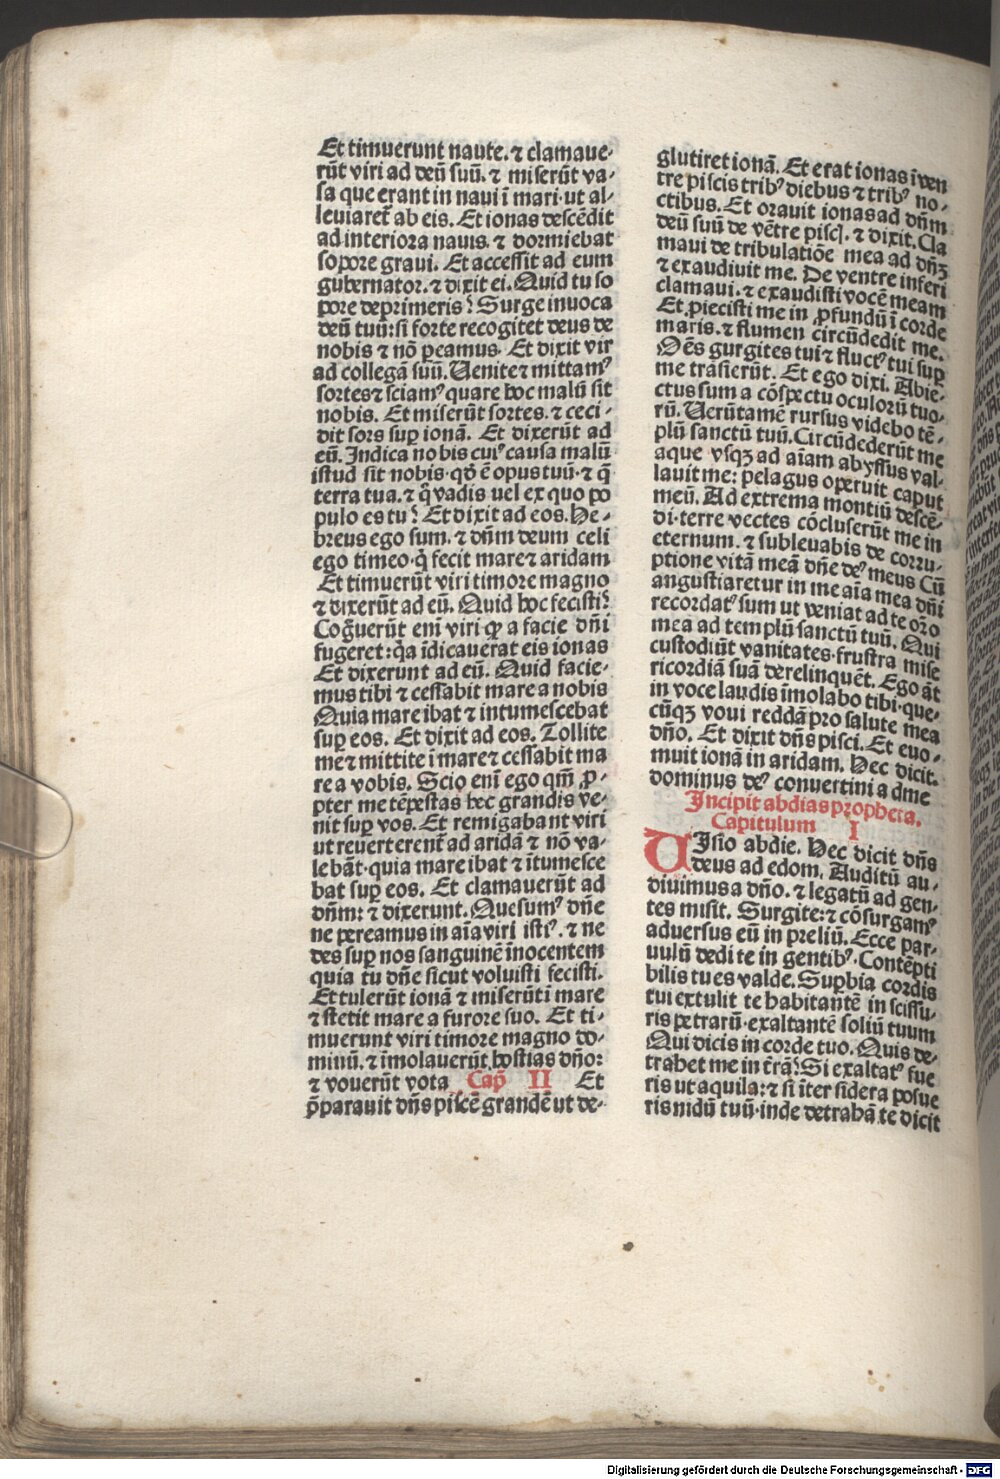 Et timuerunt naute. ⁊ clamaue-
rūt viri ad deū suū. ⁊ miserūt va-
sa que erant in naui ī mari· ut al-
leuiaret᷑ ab eis. Et ionas descēdit
ad interiora nauis. ⁊ dormiebat
sopore graui. Et accessit ad eum
gubernator. ⁊ dixit ei. Quid tu so
pore deprimeris? Surge inuoca
deū tuū: si forte recogitet deus de
nobis ⁊ nō peamus. Et dixit vir
ad collegā suū. Uenite ⁊ mittamꝰ
sortes ⁊ sciamꝰ quare hoc malū sit
nobis. Et miserūt sortes. ⁊ ceci-
dit sors sup ionā. Et dixerūt ad
eū. Indica nobis cuiꝰ causa malū
istud sit nobis· qd̄ ē opus tuū· ⁊ q̄
terra tua. ⁊ q̄ vadis uel ex quo po
pulo es tu? Et dixit ad eos. He-
breus ego sum. ⁊ dn̄m deum celi
ego timeo· q̇ fecit mare ⁊ aridam
Et timuerūt viri timore magno
⁊ dixerūt ad eū. Quid hoc fecisti?
Cog̅uerūt eni̅ viri qp a facie dn̄i
fugeret: q̇a īdicauerat eis ionas
Et dixerunt ad eū. Quid facie-
mus tibi ⁊ cessabit mare a nobis
Quia mare ibat ⁊ intumescebat
sup eos. Et dixit ad eos. Tollite
me ⁊ mittite ī mare ⁊ cessabit ma
re a vobis. Scio eni̅ ego qm̄ ꝓ-
pter me tēpestas hec grandis ve-
nit sup vos. Et remigabant viri
ut reuerterent᷑ ad aridā ⁊ nō va-
lebāt· quia mare ibat ⁊ ītumesce
bat sup eos. Et clamauerūt ad
dn̄m: ⁊ dixerunt. Quesumꝰ dn̄e
ne pereamus in aīa viri istiꝰ. ⁊ ne
des sup nos sanguinē īnocentem
quia tu dn̄e sicut voluisti fecisti.
Et tulerūt ionā ⁊ miserūt ī mare
⁊ stetit mare a furore suo. Et ti-
muerunt viri timore magno do-
minū. ⁊ īmolauerūt hostias dn̄o:
⁊ vouerūt vota Cap̄ II Et
p̄parauit dn̄s piscē grandē ut de-
glutiret ionā. Et erat ionas ī ven
tre piscis tribꝰ diebus ⁊ tribꝰ no-
ctibus. Et orauit ionas ad dn̄m
deū suū de vētre pisc̄. ⁊ dixit. Cla
maui de tribulatiōe mea ad dn̄ꝫ
⁊ exaudiuit me. De ventre inferi
clamaui. ⁊ exaudisti vocē meam
Et ꝓiecisti me in ꝓfundū ī corde
maris. ⁊ flumen circūdedit me.
Oēs gurgites tui ⁊ fluctꝰ tui sup
me trāsierūt. Et ego dixi. Abie-
ctus sum a cōspectu oculorū tuo-
rū. Uerūtamē rursus videbo tē-
plū sanctū tuū. Circūdederūt me
aque vsqꝫ ad aīam abyssus val-
lauit me: pelagus operuit caput
meū. Ad extrema montiū descē-
di· terre vectes cōcluserūt me in
eternum. ⁊ subleuabis de corru-
ptione vitā meā dn̄e deꝰ meus Cū
angustiaretur in me aīa mea dn̄i
recordatꝰ sum ut veniat ad te oro
mea ad templū sanctū tuū. Qui
custodiūt vanitates· frustra mise
ricordiā suā derelinquēt. Ego āt
in voce laudis īmolabo tibi· que-
cūqꝫ voui reddā pro salute mea
dn̄o. Et dixit dn̄s pisci. Et euo-
muit ionā in aridam. Hec dicit.
dominus deꝰ conuertini ad me
Incipit abdias propheta.
Capitulum I
UIsio abdie. Hec dicit dn̄s
deus ad edom. Auditū au-
diuimus a dn̄o. ⁊ legatū ad gen-
tes misit. Surgite: ⁊ cōsurgamꝰ
aduersus eū in preliū. Ecce par-
uulū dedi te in gentibꝰ. Contēpti
bilis tu es valde. Supbia cordis
tui extulit te habitantē in scissu-
ris petrarū· exaltantē soliū tuum
Qui dicis in corde tuo. Quis de-
trahet me in t̄rā? Si exaltatꝰ fue
ris ut aquila: ⁊ si īter sidera posue
ris nidū tuū· inde detrahā te dicit
Digitalisierung gefördert durch die Deutsche Forschungsgemeinschaft - DFG